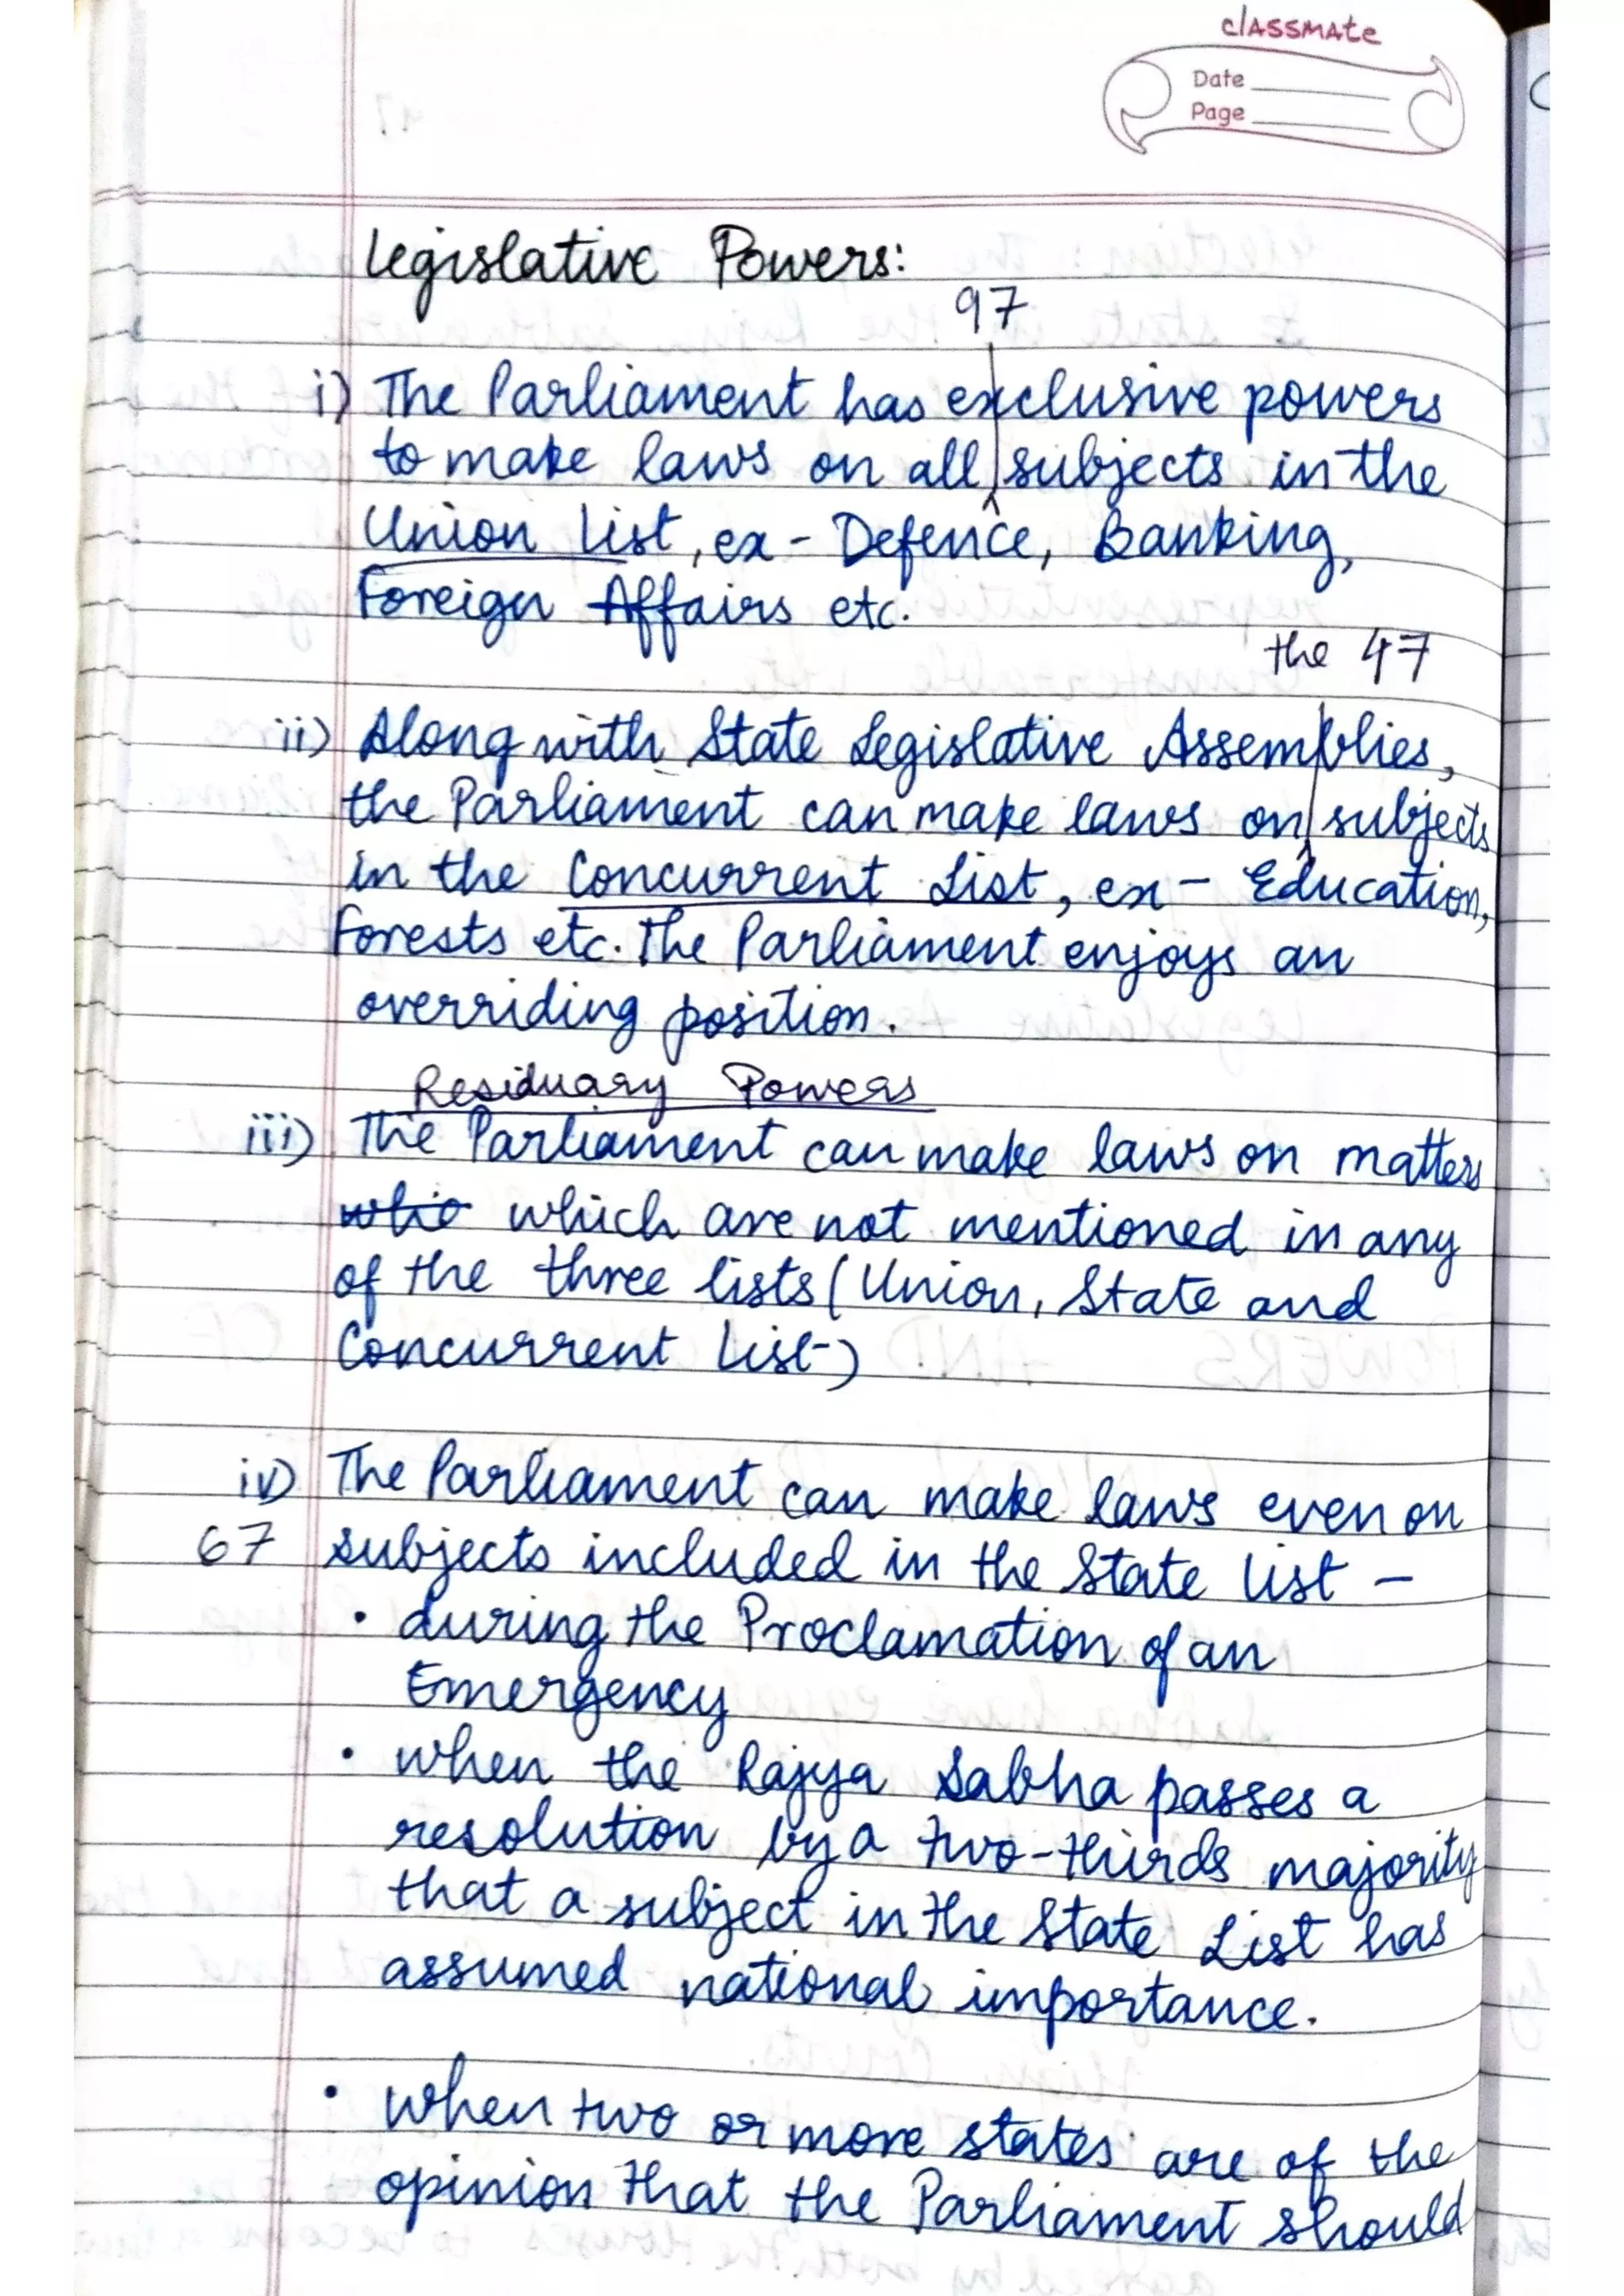 classmate
Date
Page
Legislative Powers:
97
i) The Parliament has exclusive powers
to make laws on all subjects in the
Union List, ex - Defence, Banking,
Foreign Affairs etc.
the 47
ii) Along with State Legislative Assemblies,
the Parliament can make laws on subjects
in the Concurrent List, ex - Education,
Forests etc. The Parliament enjoys an
overriding position.
Residuary Powers
iii) The Parliament can make laws on matters
whic which are not mentioned in any
of the three lists (Union, State and
Concurrent List)
iv) The Parliament can make laws even on
67 subjects included in the State list -
• during the Proclamation of an
Emergency
• when the Rajya Sabha passes a
resolution by a two-thirds majority
that a subject in the State List has
assumed national importance.
• when two or more states are of the
opinion that the Parliament should